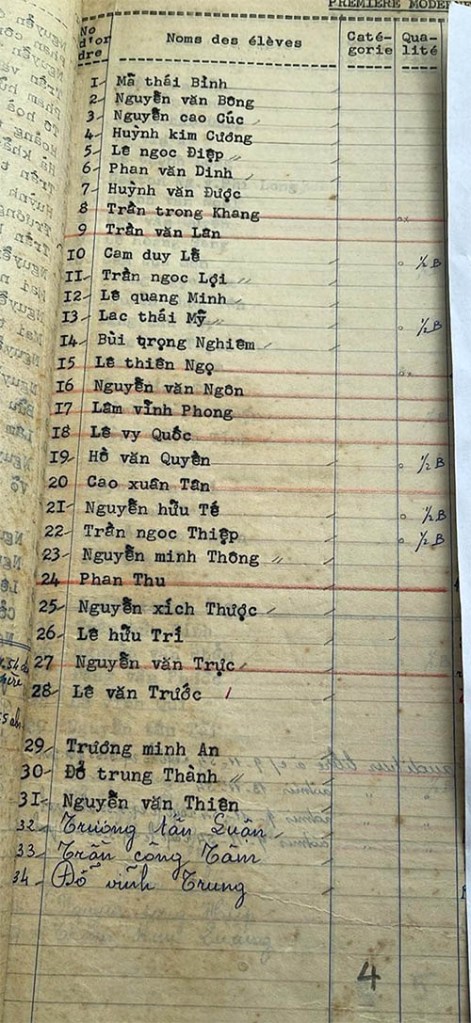 PREMIERE MODER
No d'or dre Noms des élèves Caté- gorie Qua- lité
1- Mã thái Bình
2- Nguyễn văn Bông
3- Nguyễn cao Cúc
4- Huỳnh kim Cương
5- Lê ngoc Điệp "
6- Phan văn Dinh
7- Huỳnh văn Được
8 Trần trong Khang
9 Trần văn Lân
10 Cam duy Lễ ½ B
11- Trần ngoc Lợi "
12- Lê quang Minh
13- Lac thái Mỹ ½ B
14- Bùi trọng Nghiêm
15 Lê thiên Ngọ
16 Nguyễn văn Ngôn
17 Lâm vĩnh Phong
18 Lê vy Quốc
19- Hồ văn Quyền ½ B
20 Cao xuân Tân
21- Nguyễn hữu Tế ½ B
22- Trần ngoc Thiệp ½ B
23- Nguyễn minh Thông "
24 Phan Thu
25- Nguyễn xích Thược
26- Lê hữu Trí
27 Nguyễn văn Trực
28- Lê văn Trước
29- Trương minh An
30- Đỗ trung Thành "
31- Nguyễn văn Thiên
32- Trương tấn Luận
33- Trần công Tâm
34- Đỗ vĩnh Trung
4